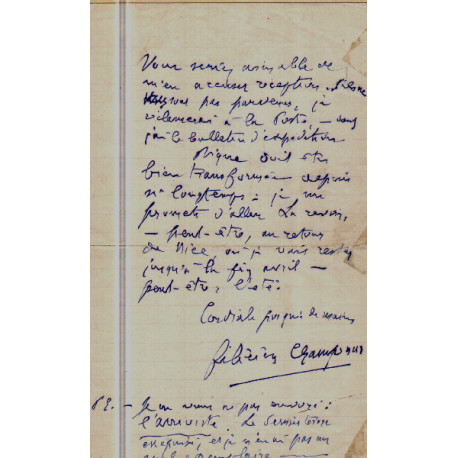 Vous seriez aimable de
m'en accuser réception. S'ils ne
vous pas parvenus, je
réclamerai à la Poste, — dont
j'ai le bulletin d'expédition
Digne doit être
bien transformée depuis
si longtemps : je me
promets d'aller la revoir,
— peut-être, au retour
de Nice, où je vais rester
jusqu'à la fin avril —
peut-être, l'été.
Cordiale poignée de mains
Félicien Champsaur
PS. — Je ne vous ai pas envoyé :
l'arriviste. Le dernier tirage
et je n'en ai pas un
seul exemplaire —